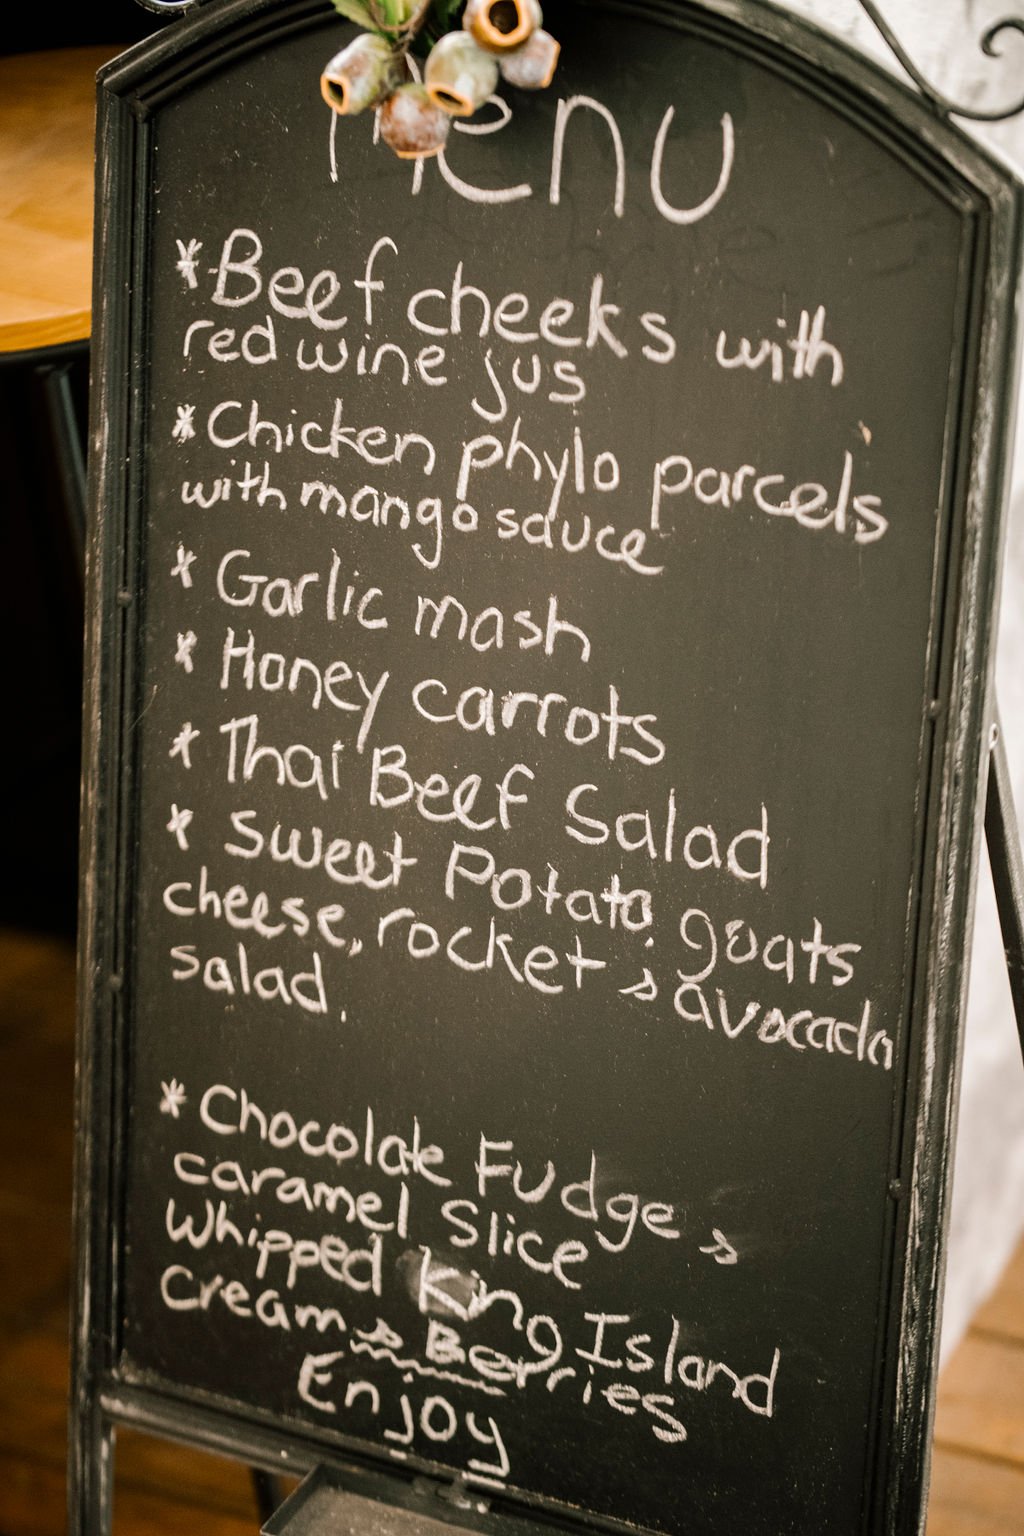 Menu
* Beef cheeks with
red wine jus
* Chicken phylo parcels
with mango sauce
* Garlic mash
* Honey carrots
* Thai Beef Salad
* Sweet Potato, goats
cheese, rocket & avocado
salad.
* Chocolate Fudge &
caramel Slice
Whipped King Island
Cream & Berries
Enjoy